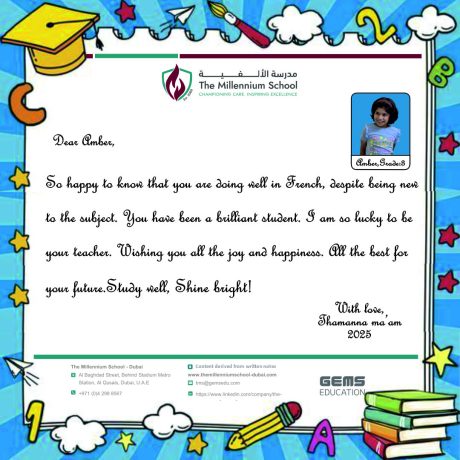 مدرسة الألفية
The Millennium School
CHAMPIONING CARE. INSPIRING EXCELLENCE
Amber,Grade:3
Dear Amber,
So happy to know that you are doing well in French, despite being new
to the subject. You have been a brilliant student. I am so lucky to be
your teacher. Wishing you all the joy and happiness. All the best for
your future.Study well, Shine bright!
With love,
Thamanna ma'am
2025
The Millennium School - Dubai
Al Baghdad Street, Behind Stadium Metro
Station, Al Qusais, Dubai, U.A.E
+971 (0)4 298 8567
Content derived from written notes
www.themillenniumschool-dubai.com
tms@gemsedu.com
https://www.linkedin.com/company/the-
GEMS
EDUCATION
2
B
C
1
A